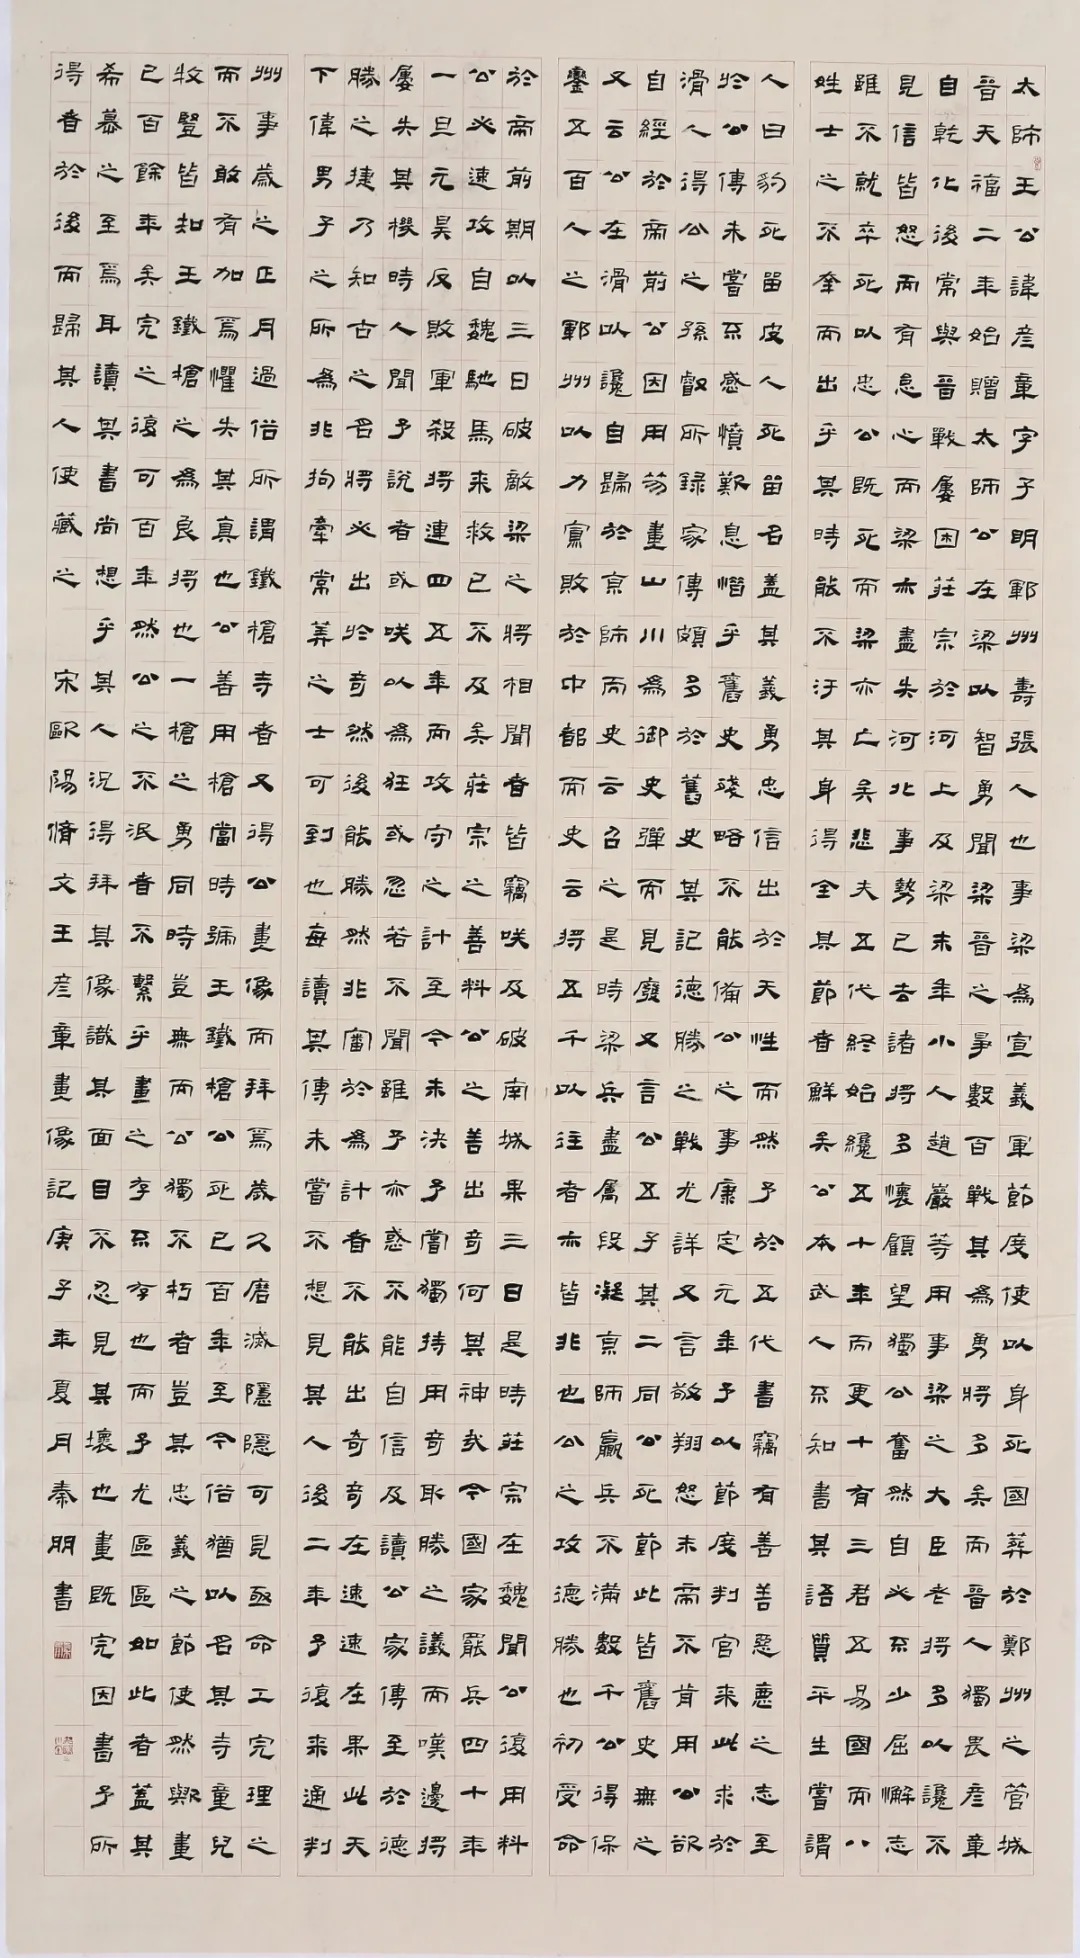 太師王公諱彦章字子明鄆州壽張人也事梁為宣義軍節度使以身死國葬於鄭州之管城
晉天福二年始贈太師公在梁以智勇聞梁晉之爭數百戰其為勇將多矣而晉人獨畏彦章
自乾化後常與晉戰屢困莊宗於河上及梁末年小人趙巖等用事梁之大臣老將多以讒不
見信皆怒而有怠心而梁亦盡失河北事勢已去諸將多懷顧望獨公奮然自必不少屈懈志
雖不就卒死以忠公既死而梁亦亡矣悲夫五代終始纔五十年而更十有三君五易國而八
姓士之不幸而出乎其時能不汙其身得全其節者鮮矣公本武人不知書其語質平生嘗謂
人曰豹死留皮人死留名蓋其義勇忠信出於天性而然予於五代書竊有善善惡惡之志至
於公傳未嘗不感憤歎息惜乎舊史殘略不能備公之事康定元年予以節度判官來此求於
滑人得公之孫叡所錄家傳頗多於舊史其記德勝之戰尤詳又言敬翔怒末帝不肯用公欲
自經於帝前公因用笏畫山川為御史彈而見廢又言公五子其二同公死節此皆舊史無之
又云公在滑以讒自歸於京師而史云召之是時梁兵盡屬段凝京師羸兵不滿數千公得保
鑾五百人之鄆州以力寡敗於中都而史云將五千以往者亦皆非也公之攻德勝也初受命
於帝前期以三日破敵梁之將相聞者皆竊笑及破南城果三日是時莊宗在魏聞公復用料
公必速攻自魏馳馬來救已不及矣莊宗之善料公之善出奇何其神哉今國家罷兵四十年
一旦元昊反敗軍殺將連四五年而攻守之計至今未決予嘗獨持用奇取勝之議而嘆邊將
屢失其機時人聞予說者或笑以為狂或忽若不聞雖予亦惑不能自信及讀公家傳至於德
勝之捷乃知古之名將必出於奇然後能勝然非審於為計者不能出奇奇在速速在果此天
下偉男子之所為非拘牽常算之士可到也每讀其傳未嘗不想見其人後二年予復來通判
州事歲之正月過俗所謂鐵槍寺者又得公畫像而拜焉歲久磨滅隱隱可見亟命工完理之
而不敢有加焉懼失其真也公善用槍當時號王鐵槍公死已百年至今俗猶以名其寺童兒
牧豎皆知王鐵槍之為良將也一槍之勇同時豈無而公獨不朽者豈其忠義之節使然歟畫
已百餘年矣完之復可百年然公之不泯者不繫乎畫之存不存也而予尤區區如此者蓋其
希慕之至焉耳讀其書尚想乎其人況得拜其像識其面目不忍見其壞也畫既完因書予所
得者於後而歸其人使藏之 宋歐陽脩文王彦章畫像記庚子年夏月秦朋書